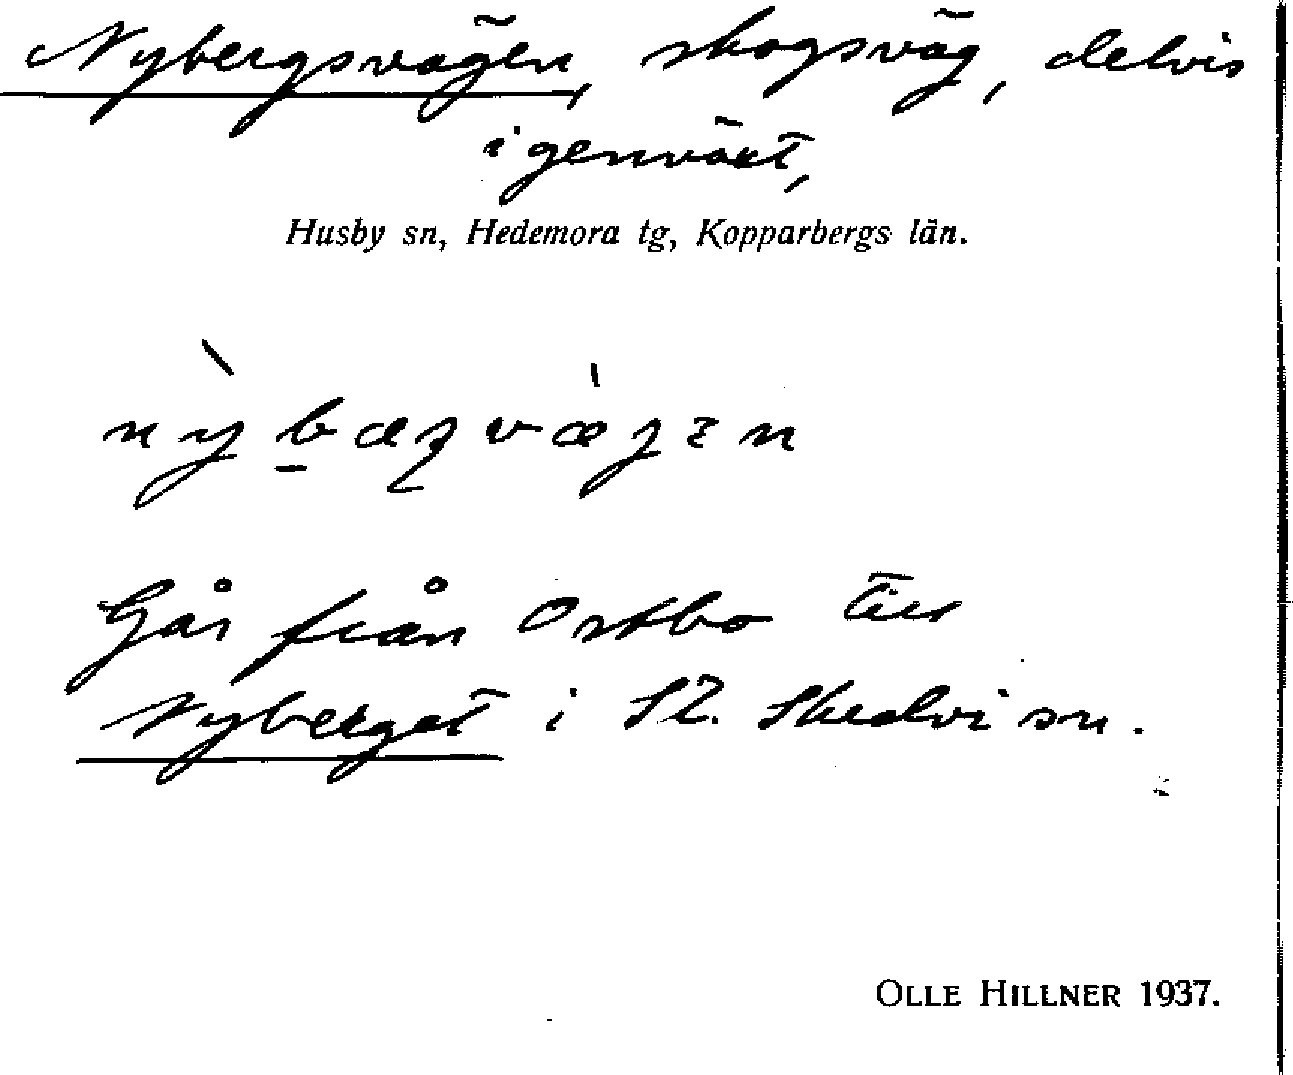 Nybergsvägen, skogsväg, delvis
igenväxt,
Husby sn, Hedemora tg, Kopparbergs län.
Går från Ostbo till
Nyberget i St. Skedvi sn.
OLLE HILLNER 1937.